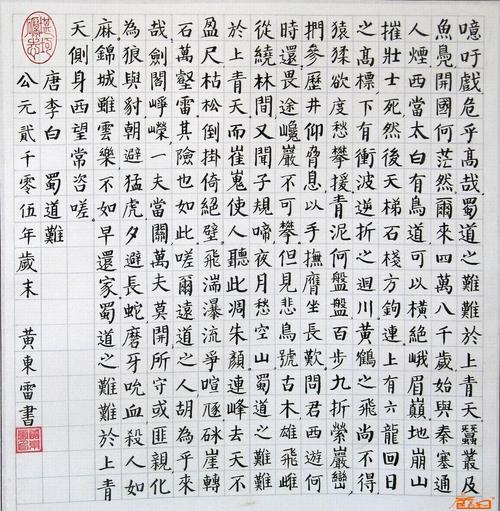 噫吁戲危乎高哉蜀道之難難於上青天蠶叢及
魚鳧開國何茫然爾來四萬八千歲始與秦塞通
人煙西當太白有鳥道可以橫絕峨眉巔地崩山
摧壯士死然後天梯石棧方鉤連上有六龍回日
之高標下有衝波逆折之迴川黃鶴之飛尚不得
猿猱欲度愁攀援青泥何盤盤百步九折縈巖巒
捫參歷井仰脅息以手撫膺坐長歎問君西遊何
時還畏途巉巖不可攀但見悲鳥號古木雄飛雌
從繞林間又聞子規啼夜月愁空山蜀道之難難
於上青天而崔嵬使人聽此凋朱顏連峰去天不
盈尺枯松倒掛倚絕壁飛湍瀑流爭喧豗砯崖轉
石萬壑雷其險也如此嗟爾遠道之人胡為乎來
哉劍閣崢嶸一夫當關萬夫莫開所守或匪親化
為狼與豺朝避猛虎夕避長蛇磨牙吮血殺人如
麻錦城雖雲樂不如早還家蜀道之難難於上青
天側身西望常咨嗟
唐李白 蜀道難
公元貳千零伍年歲末 黃東雷書